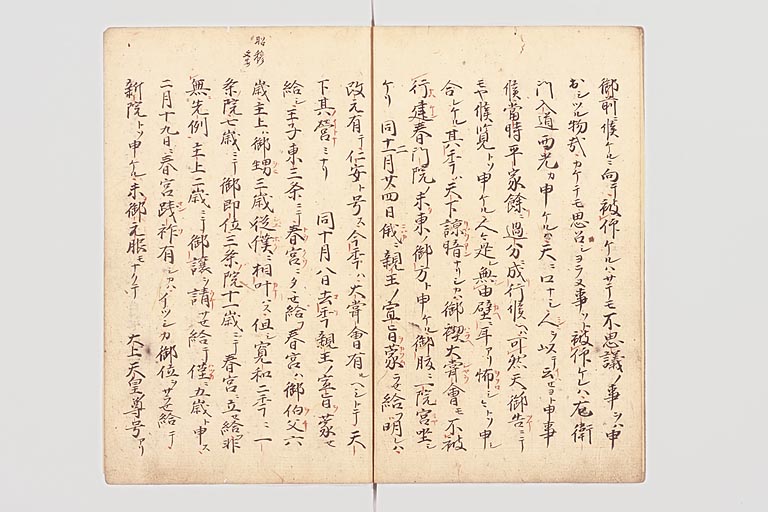 御前候ケル向テ被仰ケルハサテモ不思議ノ事ヲハ申
出シツル物哉カケテモ思召シヨラヌ事ヲト被仰ケレハ左衛
門入道西光カ申ケルハ天ニ口ナシ人ヲ以テ云セヨト申事
候當時平家餘ニ過分ニ成行候ヘハ可然天御告ニテ
モヤ候覧トソ申ケル人々是ノ無由壁ニ耳アリ怖シトソ申シ
合レケル其年ハ天下諒暗ナリシカハ御禊大嘗會モ不被
行建春門院未東ノ御方ト申ケル御腹ニ一院宮坐シ
ケリ 同十二月廿四日俄ニ親王ノ宣旨蒙ラセ給フ明レハ
改元有テ仁安ト号ス今年ハ大嘗會有ルヘシトテ天
下其營ミナリ 同十月八日去年親王ノ宣旨蒙セ
給シ王子東三条ニテ春宮ニタゝセ給フ春宮ハ御伯父六
歳主上ハ御甥三歳從僕ニ相叶ハス但シ寛和二年ニ一
条院七歳ニテ御即位三条院十一歳ニテ春宮ニ立セ給非
無先例主上二歳ニテ御讓ヲ請サセ給テ僅ニ五歳ト申ス
二月十九日ニ春宮踐祚有シカハイツシカ御位ヲサセ給テ
新院トソ申ケル未御元服モナクテ 太上天皇ノ尊号アリ
昭穆